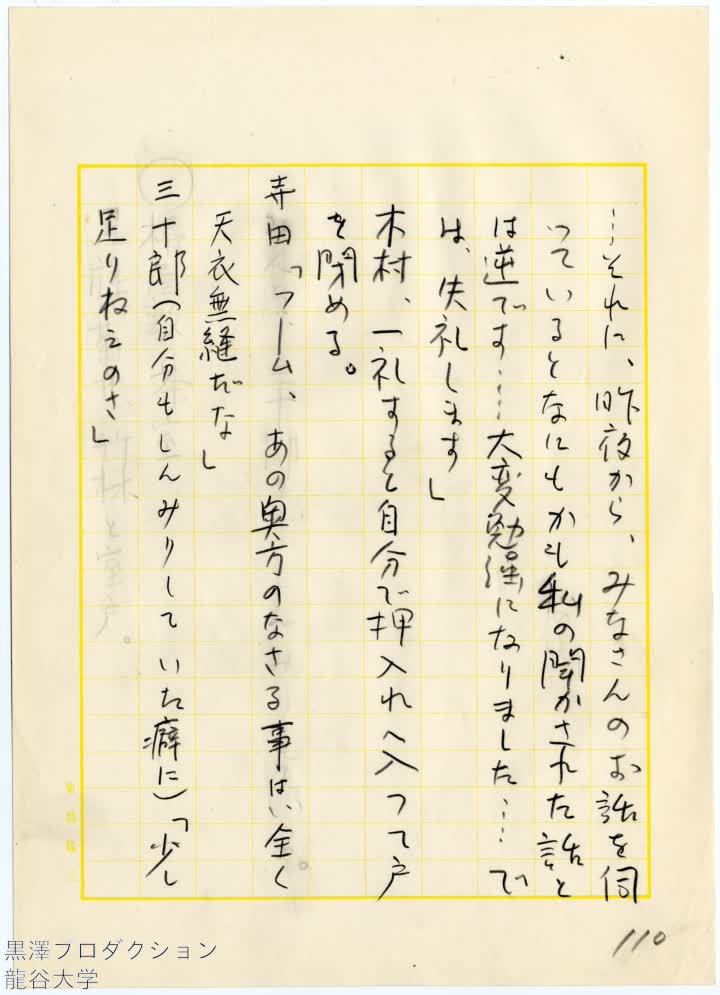 …それに、昨夜から、みなさんのお話を伺
っているとなにもかも私の聞かされた話と
は逆です……大変勉強になりました……で
は、失礼します」
木村、一礼すると自分で押入れへ入って戸
を閉める。
寺田「フーム、あの奥方のなさる事は、全く
天衣無縫だな」
三十郎（自分もしんみりしていた癖に）「少し
足りねえのさ」
110
黒澤プロダクション
龍谷大学